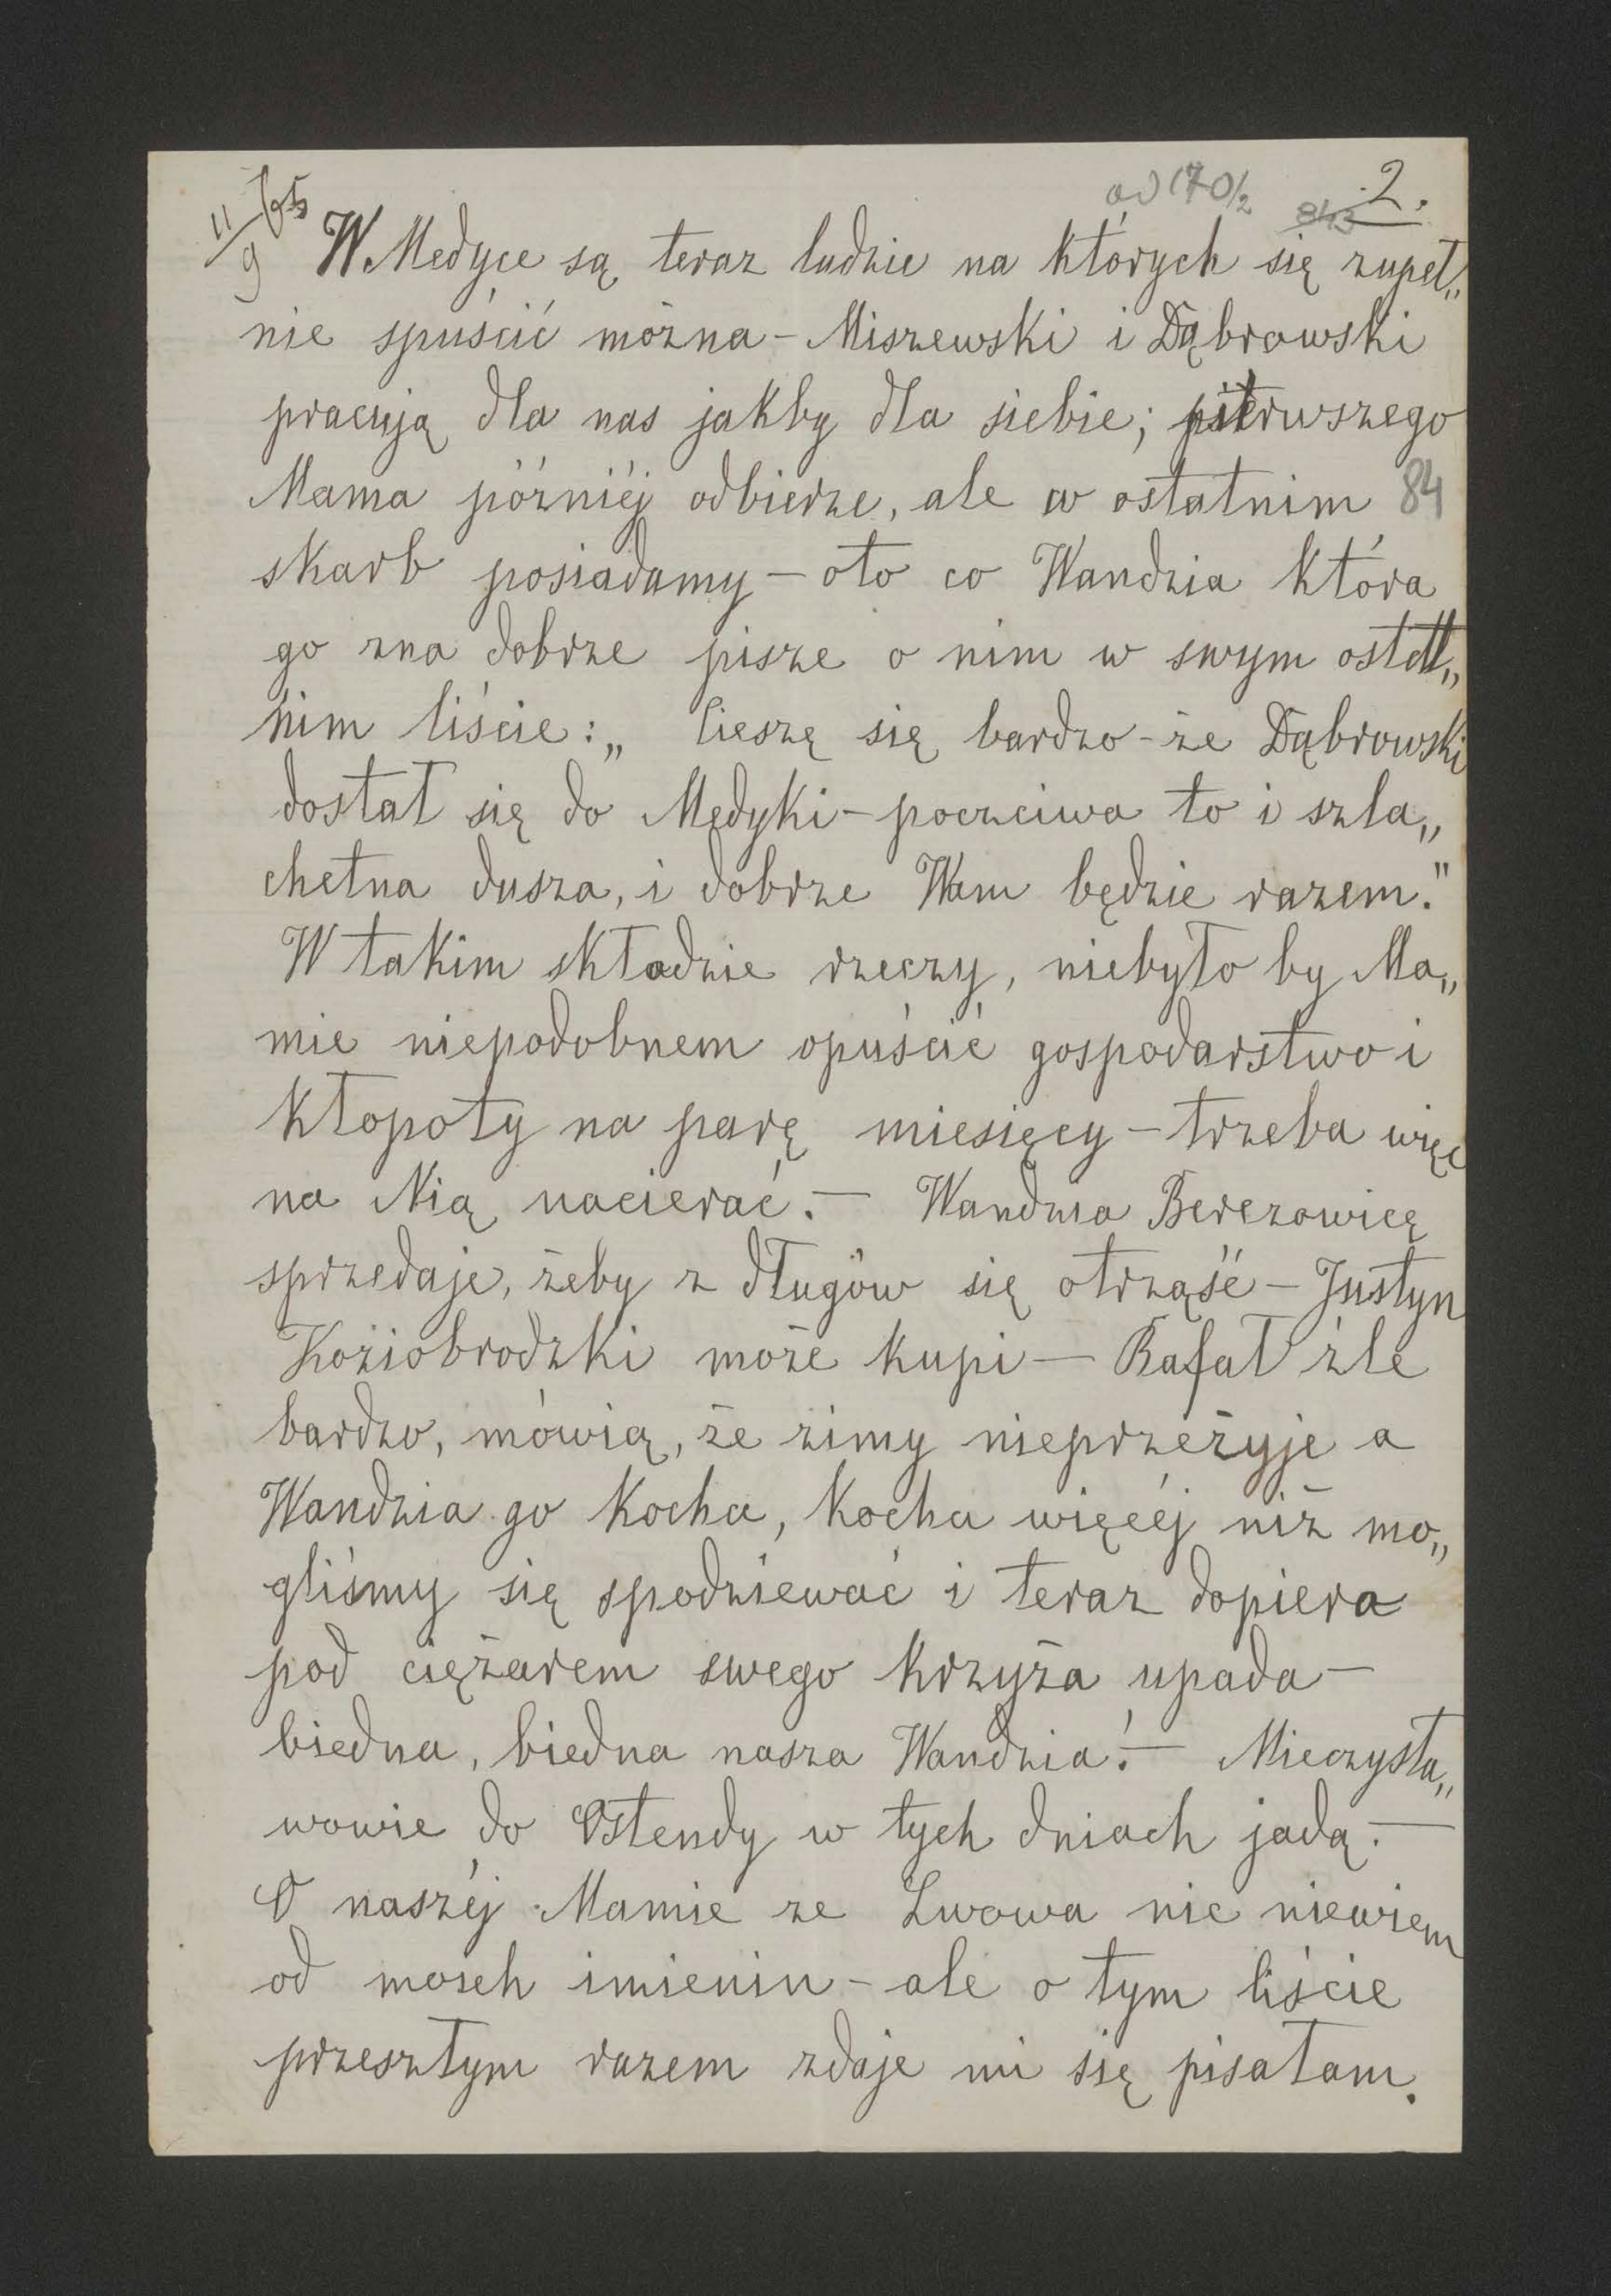 11/9 65
od 170/2 843 2.
W Medyce są teraz ludzie na których się zupeł„
nie spuścić można – Miszewski i Dąbrowski
pracują dla nas jakby dla siebie; pierwszego
Mama później odbierze, ale w ostatnim 84
skarb posiadamy – oto co Wandzia która
go zna dobrze pisze o nim w swym ostat„
nim liście: „ Cieszę się bardzo – że Dąbrowski
dostał się do Medyki – poczciwa to i szla„
chetna dusza, i dobrze Wam będzie razem."
W takim składzie rzeczy, niebyło by Ma„
mie niepodobnem opuścić gospodarstwo i
kłopoty na parę miesięcy – trzeba więc
na Nią nacierać. – Wandzia Berezowicę
sprzedaje, żeby z długów się otrząść – Justyn
Koziobrodzki może kupi – Rafał źle
bardzo, mówią, że zimy nieprzeżyje a
Wandzia go kocha, kocha więcéj niż mo„
gliśmy się spodziewać i teraz dopiera
pod ciężarem swego krzyża upada –
biedna, biedna nasza Wandzia! – Mieczysła„
wowie do Ostendy w tych dniach jadą. –
O naszéj Mamie ze Lwowa nic niewiem
od moich imienin – ale o tym liście
przeszłym razem zdaje mi się pisałam.